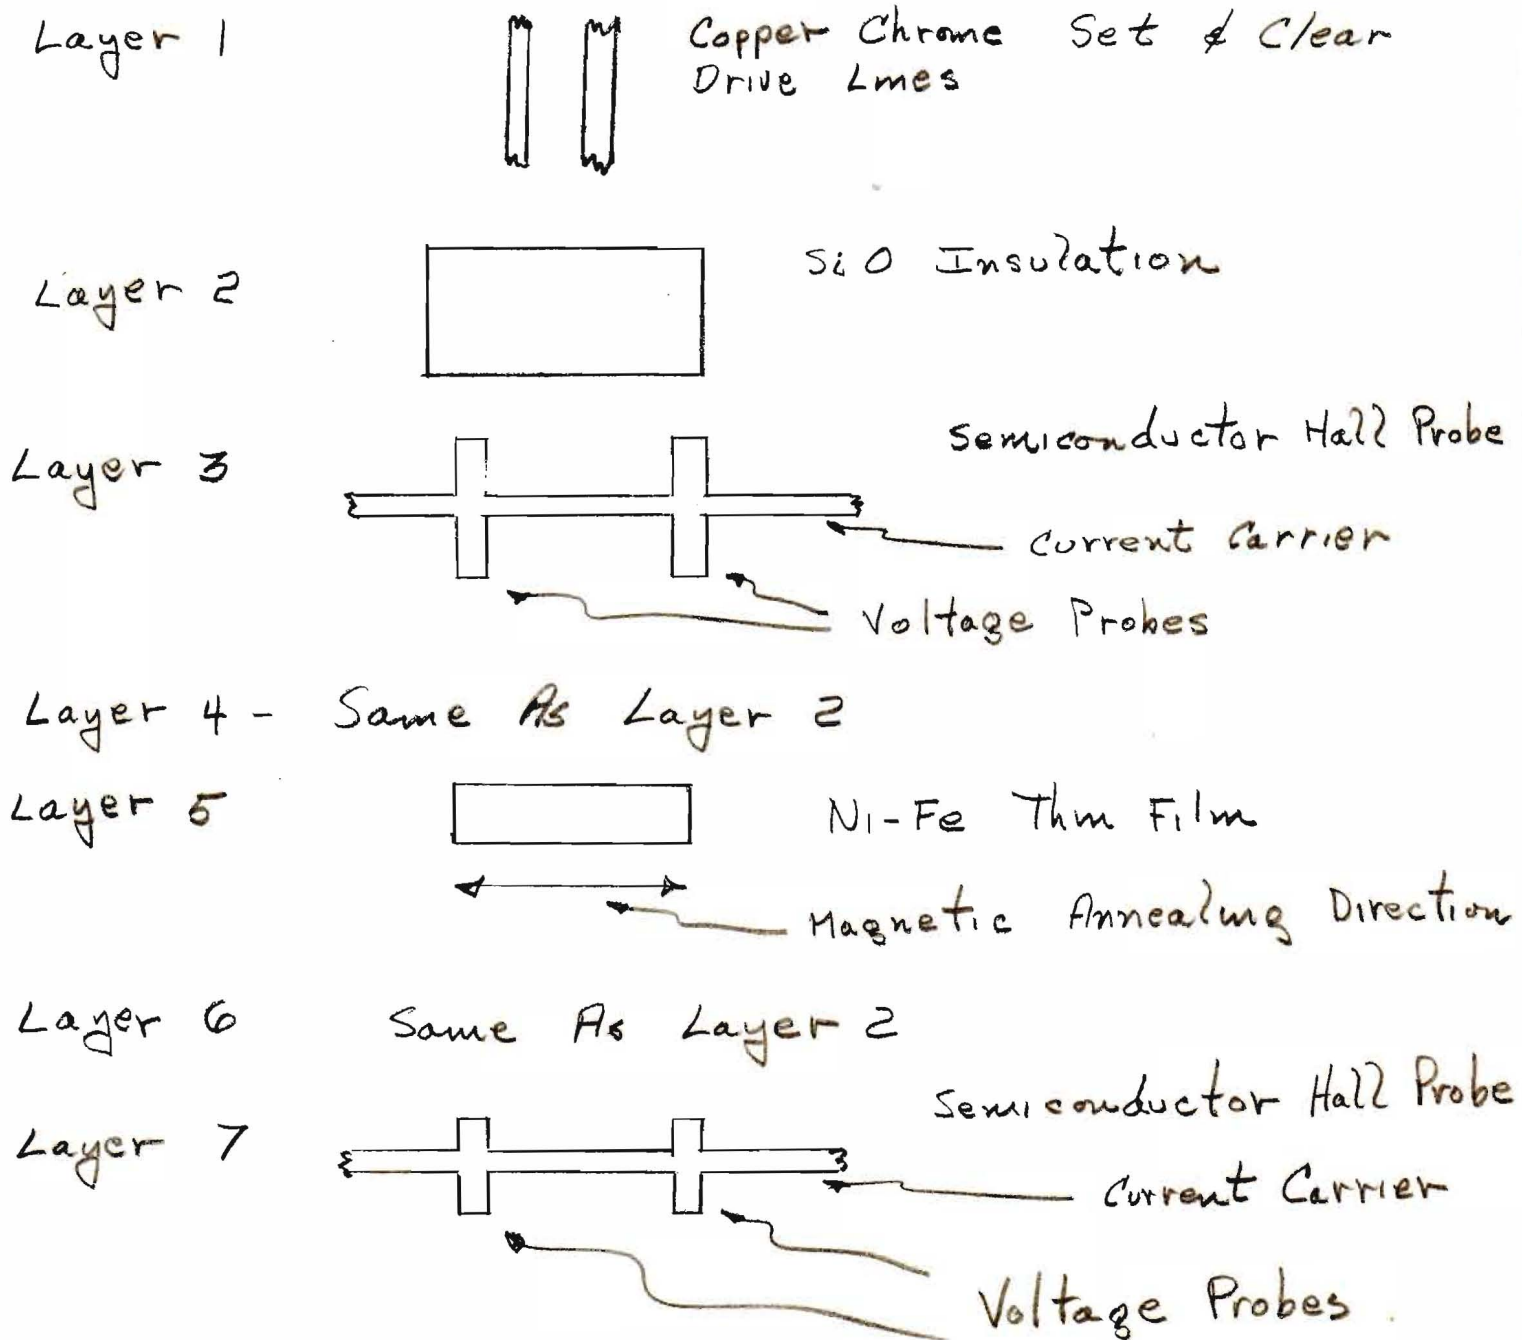 Layer 1
Copper Chrome Set & Clear
Drive Lines
Layer 2
SiO Insulation
Layer 3
Semiconductor Hall Probe
Current Carrier
Voltage Probes
Layer 4 - Same As Layer 2
Layer 5
Ni-Fe Thin Film
Magnetic Annealing Direction
Layer 6 Same As Layer 2
Semiconductor Hall Probe
Layer 7
Current Carrier
Voltage Probes